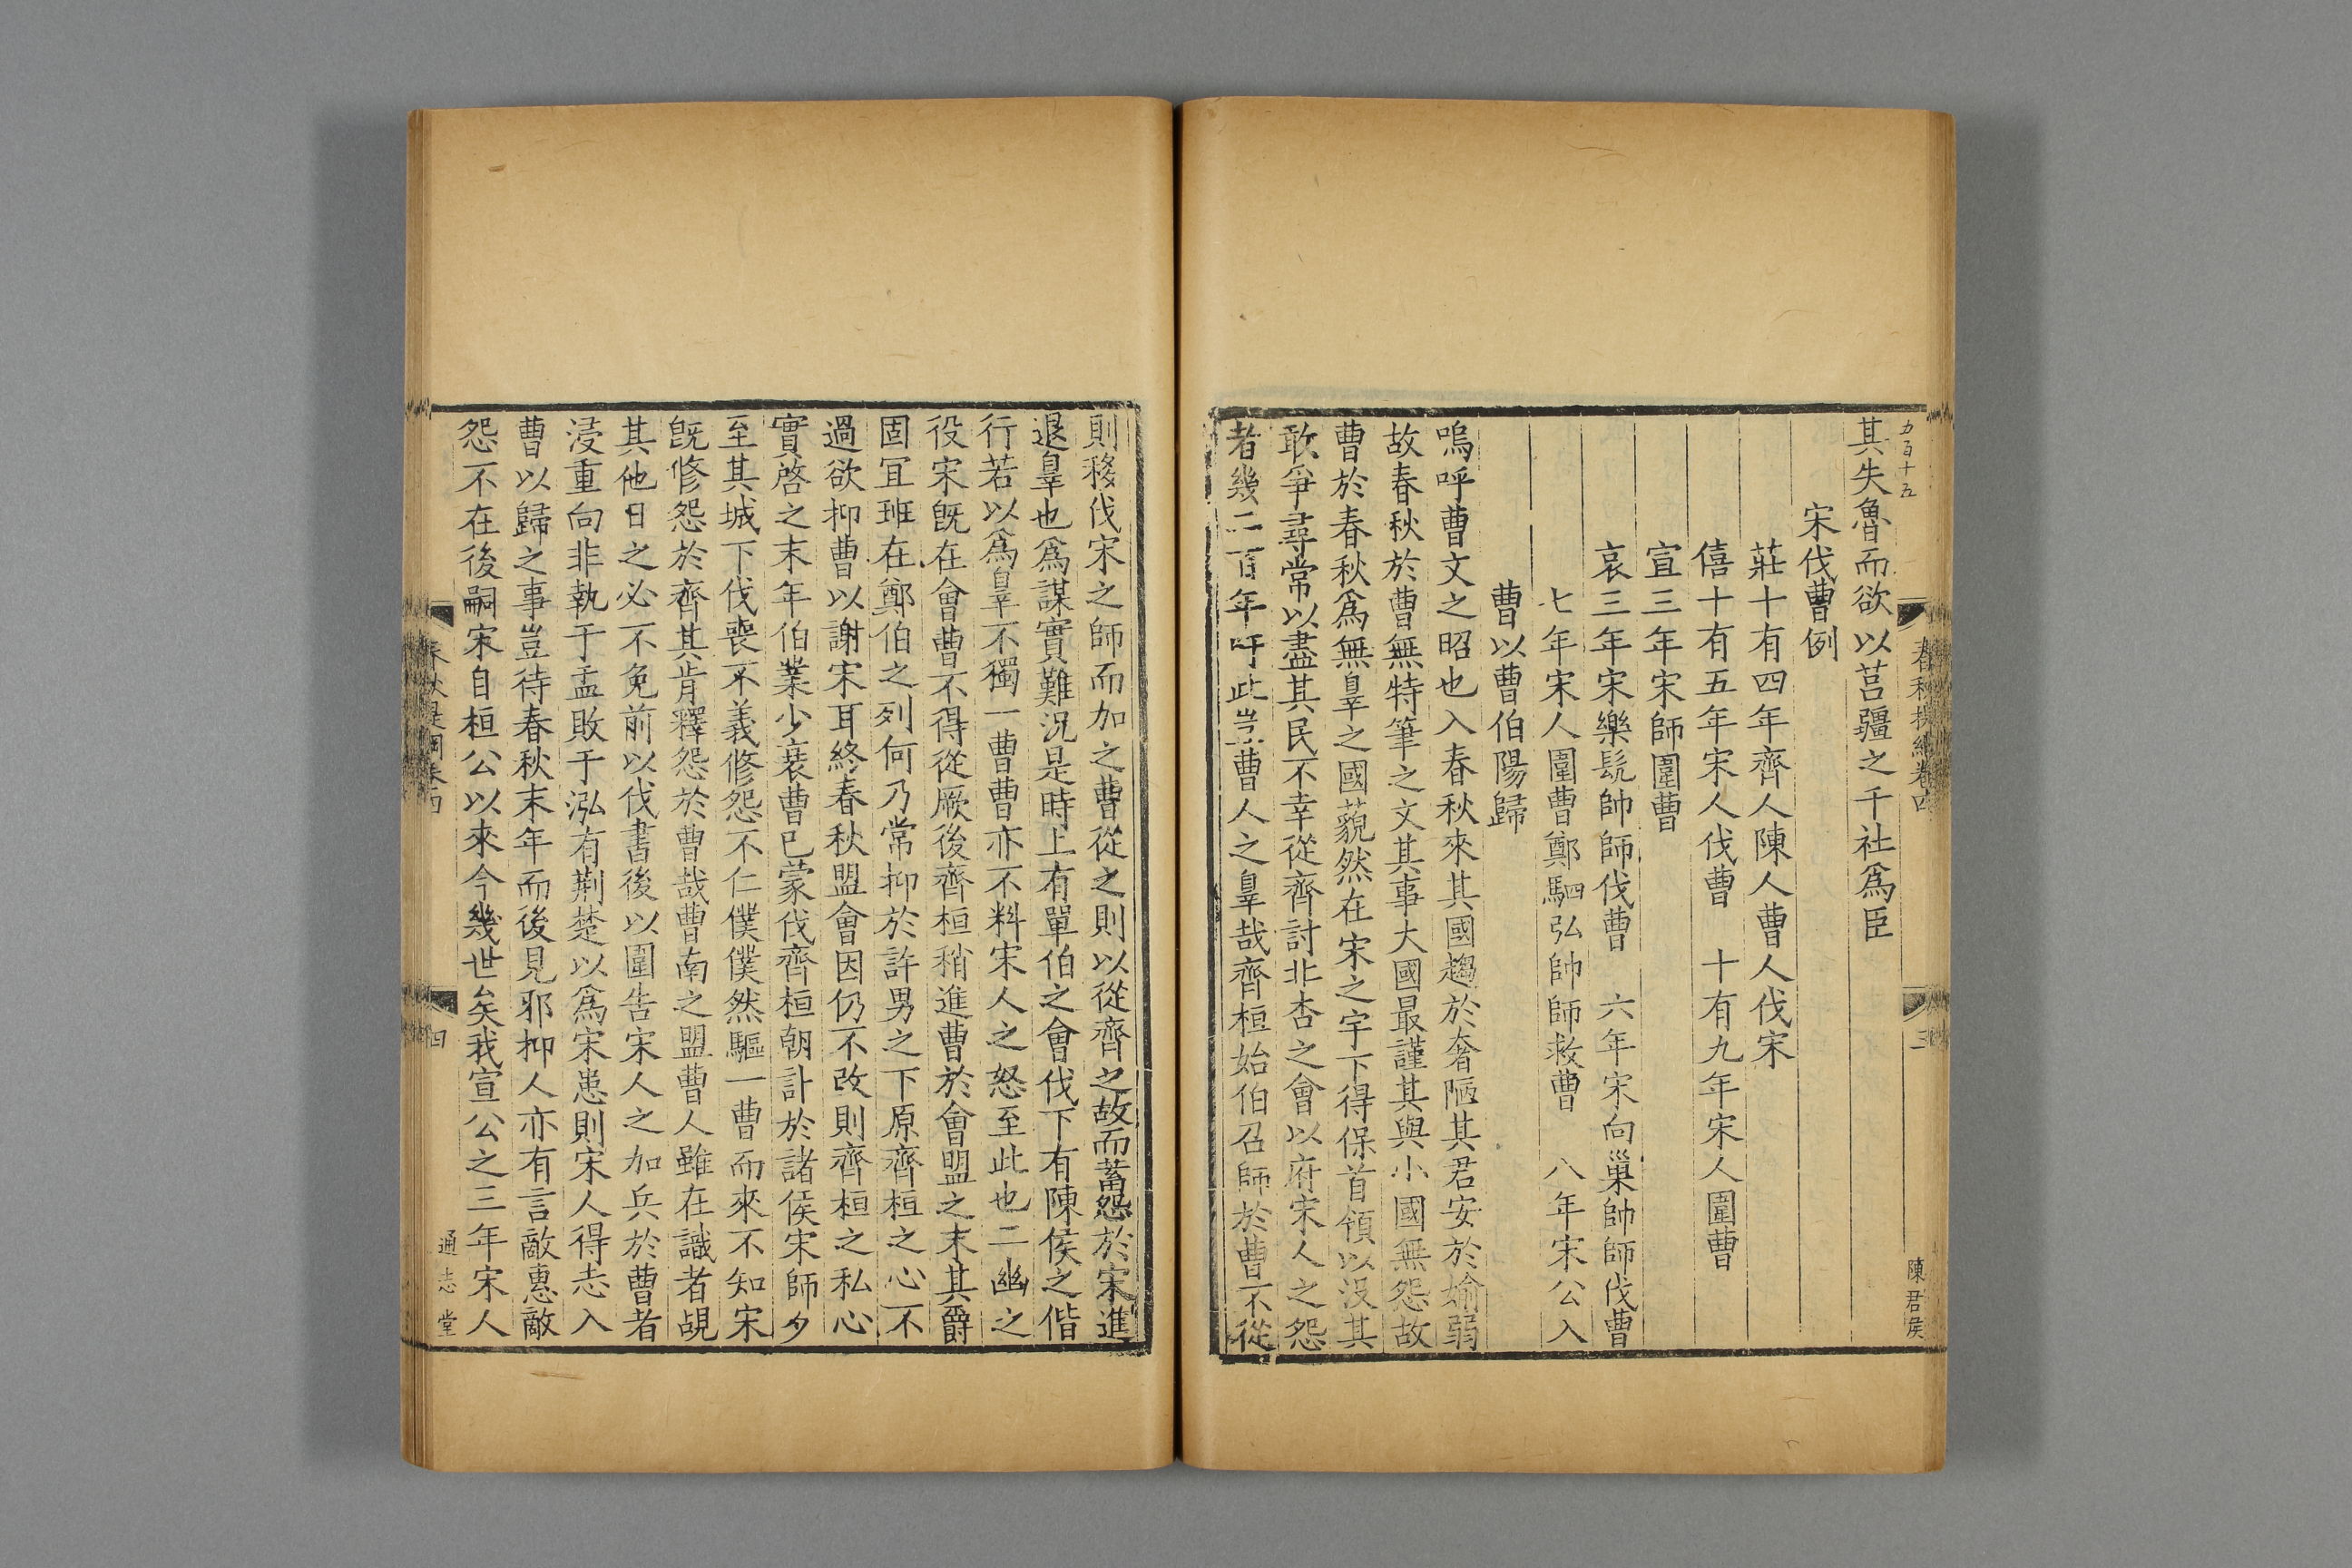 其失魯而欲以莒疆之千社爲臣
宋伐曹例
莊十有四年齊人陳人曹人伐宋
僖十有五年宋人伐曹　十有九年宋人圍曹
宣三年宋師圍曹
哀三年宋樂髡帥師伐曹　六年宋向巢帥師伐曹
七年宋人圍曹鄭駟弘帥師救曹　八年宋公入
曹以曹伯陽歸
嗚呼曹文之昭也入春秋來其國趨於奢陋其君安於媮弱
故春秋於曹無特筆之文其事大國最謹其與小國無怨故
曹於春秋爲無辠之國藐然在宋之宇下得保首領以沒其
敢爭尋常以盡其民不幸從齊討北杏之會以府宋人之怨
者幾二百年吁此豈曹人之辠哉齊桓始伯召師於曹不從
春秋提綱卷四
三
陳君侯
則移伐宋之師而加之曹從之則以從齊之故而蓄怨於宋進
退辠也爲謀實難況是時上有單伯之會伐下有陳侯之偕
行若以爲辠不獨一曹曹亦不料宋人之怒至此也二幽之
役宋旣在會曹不得從厥後齊桓稍進曹於會盟之末其爵
固冝班在鄭伯之列何乃常抑於許男之下原齊桓之心不
過欲抑曹以謝宋耳終春秋盟會因仍不改則齊桓之私心
實啓之末年伯業少衰曹已蒙伐齊桓朝計於諸侯宋師夕
至其城下伐喪不義修怨不仁僕僕然驅一曹而來不知宋
旣修怨於齊其肯釋怨於曹哉曹南之盟曹人雖在識者覘
其他日之必不免前以伐書後以圍告宋人之加兵於曹者
浸重向非執于盂敗于泓有荆楚以爲宋患則宋人得志入
曹以歸之事豈待春秋末年而後見邪抑人亦有言敵惠敵
怨不在後嗣宋自桓公以來今幾世矣我宣公之三年宋人
四
通志堂